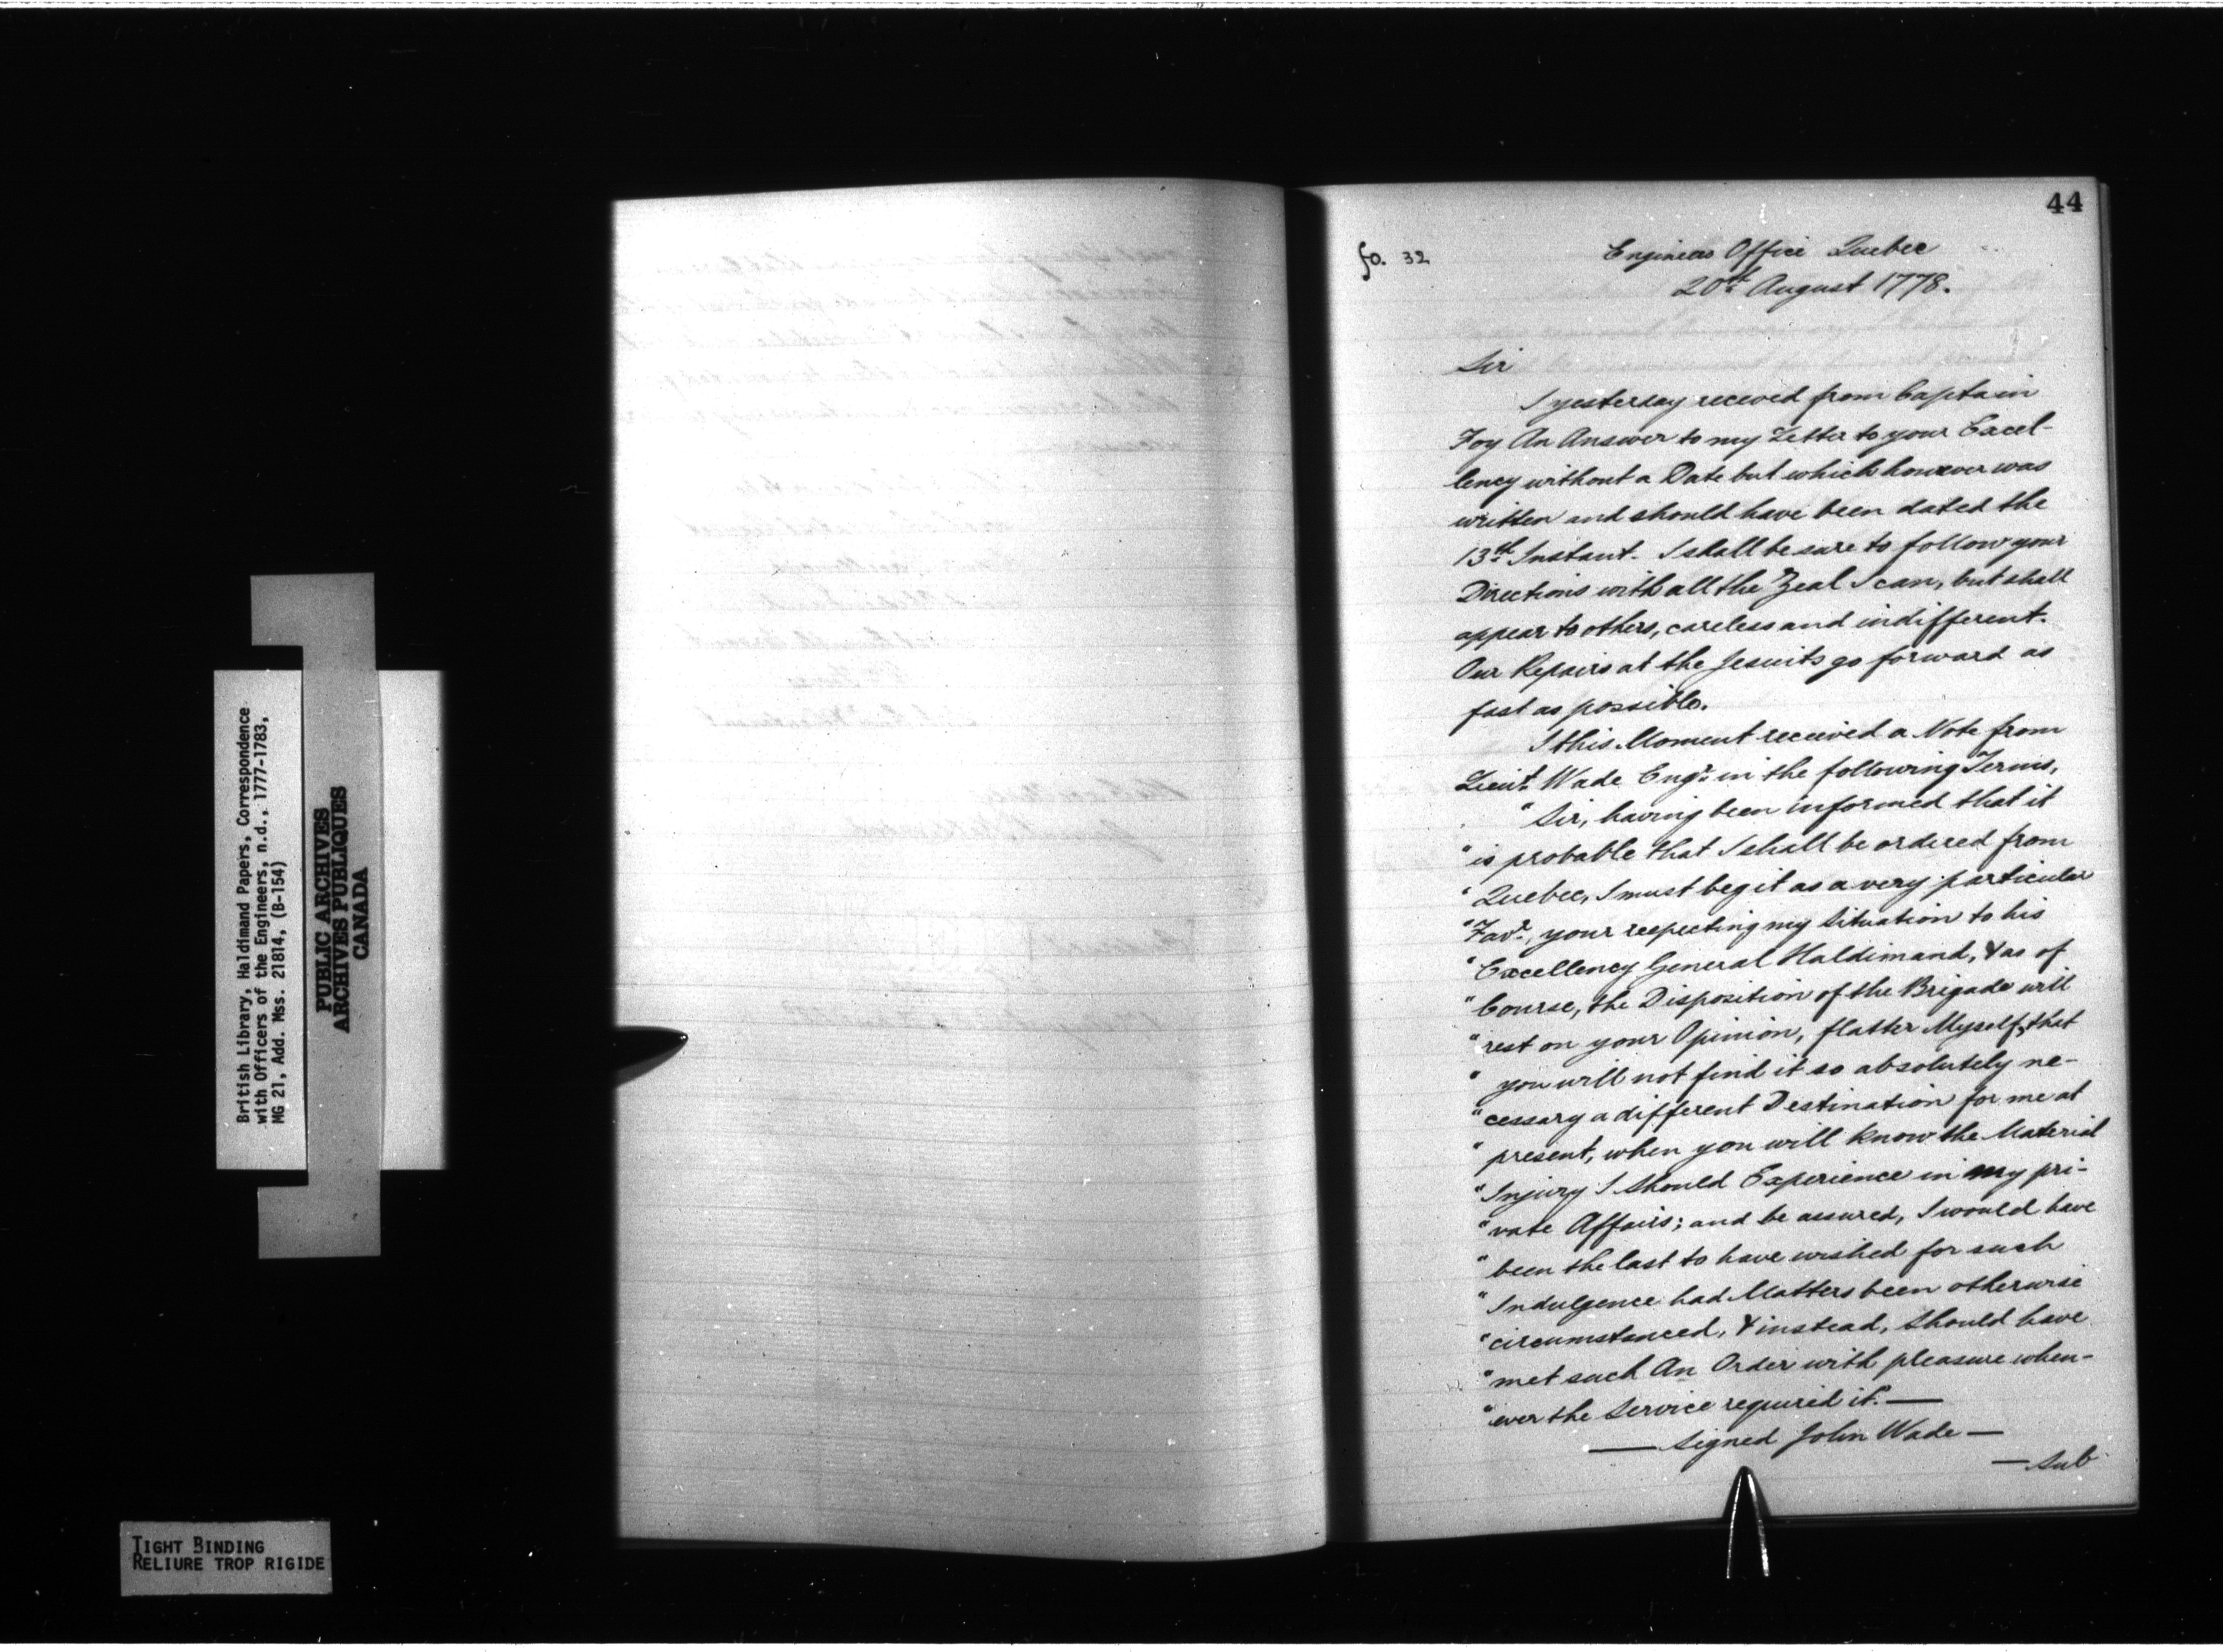 British Library, Haldimand Papers, Correspondence
with Officers of the Engineers, n.d., 1777-1783,
MG 21, Add. Mss. 21814, (B-154)
PUBLIC ARCHIVES
ARCHIVES PUBLIQUES
CANADA
TIGHT BINDING
RELIURE TROP RIGIDE
44
fo. 32
Engineers Office Quebec
20th August 1778.
Sir
I yesterday received from Captain
Foy An Answer to my Letter to your Excel-
lency without a Date but which however was
written and should have been dated the
13th Instant. I shall be sure to follow your
Directions with all the Zeal I can, but shall
appear to others, careless and indifferent.
Our Repairs at the Jesuits go forward as
fast as possible.
I this Moment received a Note from
Lieut Wade Engr. in the following Terms,
"Sir, having been informed that it
"is probable that I shall be ordered from
"Quebec, I must beg it as a very particular
"Favr., your respecting my Situation to his
"Excellency General Haldimand, & as of
"Course, the Disposition of the Brigade will
"rest on your Opinion, flatter Myself, that
"you will not find it so absolutely ne-
"cessary a different Destination for me at
"present, when you will know the Material
"Injury I should Experience in my pri-
"vate Affairs; and be assured, I would have
"been the last to have wished for such
"Indulgence had Matters been otherwise
"circumstanced, & instead, should have
"met such An Order with pleasure when-
"ever the Service required it." —
— Signed John Wade —
— Sub